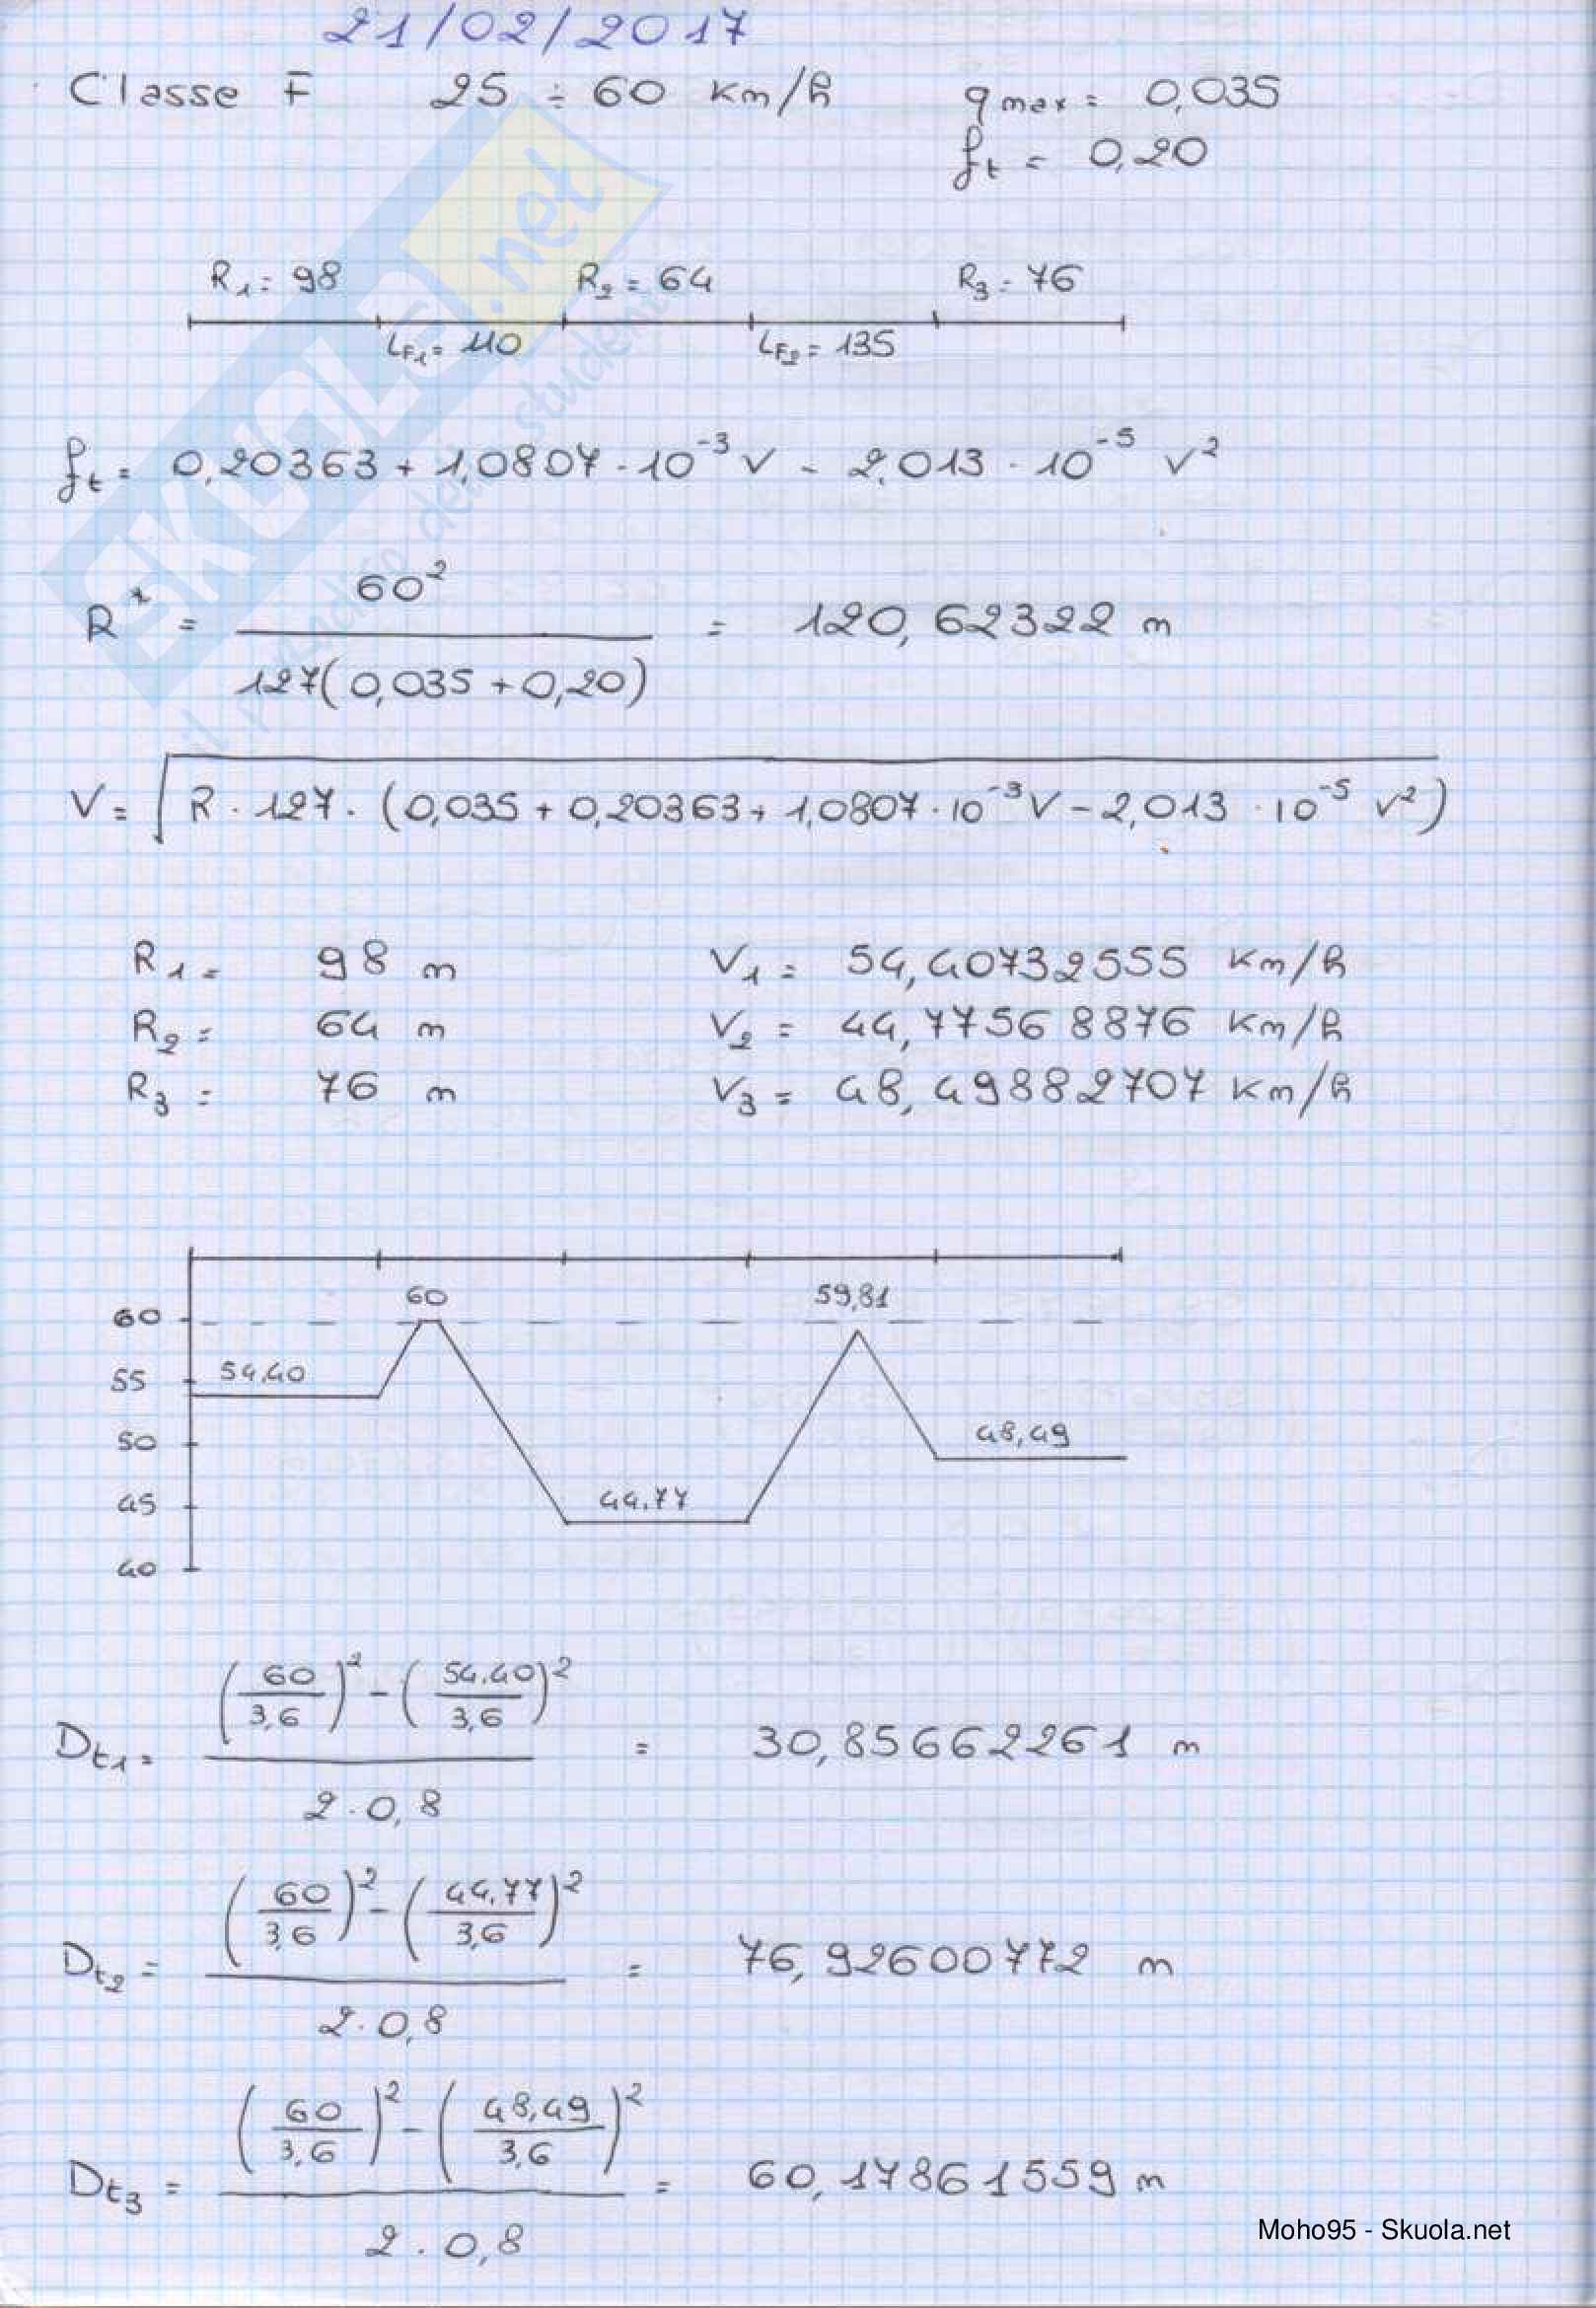 21/02/2017
Classe F 25 ÷ 60 Km/h qmax = 0,035
ft = 0,20
R1 = 98 R2 = 64 R3 = 76
LF1 = 110 LF2 = 135
ft = 0,20363 + 1,0807 · 10^-3 V - 2,013 · 10^-5 V^2
60^2
R* = = 120,62322 m
127(0,035 + 0,20)
V = √ R · 127 · (0,035 + 0,20363 + 1,0807 · 10^-3 V - 2,013 · 10^-5 V^2)
R1 = 98 m V1 = 54,40732555 Km/h
R2 = 64 m V2 = 44,77568876 Km/h
R3 = 76 m V3 = 48,49882707 Km/h
60 59,81
60
55 54,40
50 48,49
45 44,77
40
(60/3,6)^2 - (54,40/3,6)^2
Dt1 = = 30,85662261 m
2 · 0,8
(60/3,6)^2 - (44,77/3,6)^2
Dt2 = = 76,92600772 m
2 · 0,8
(60/3,6)^2 - (48,49/3,6)^2
Dt3 = = 60,17861559 m
2 · 0,8
Moho95 - Skuola.net
SKUOLA.net